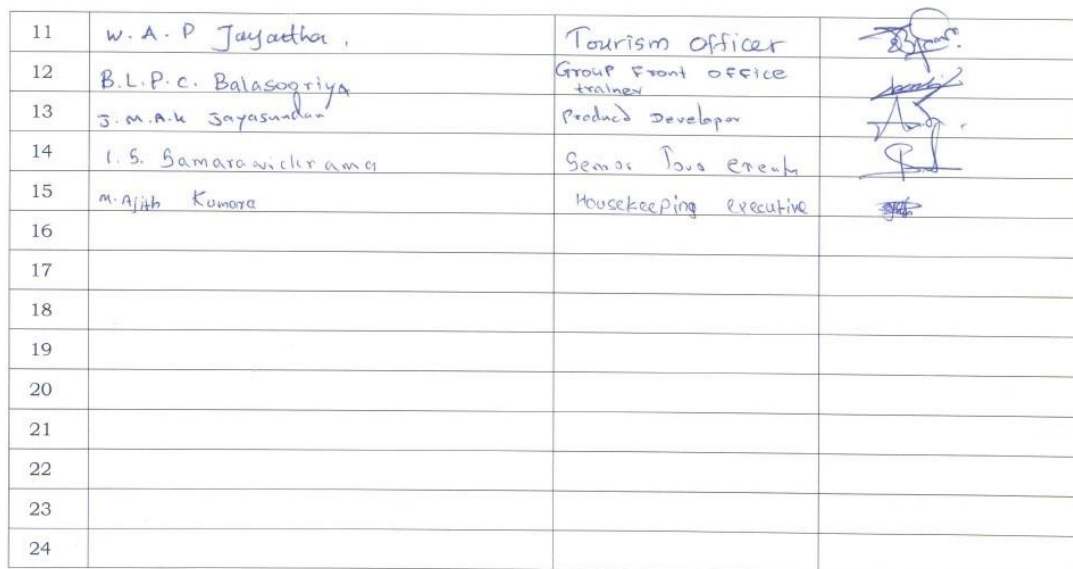 11 W. A. P Jayantha. Tourism Officer
12 B.L.P.C. Balasooriya Group Front office
trainer
13 J.M.A.K Jayasundara Product Developer
14 I. S. Samarawickrama
15 M. Ajith Kumara Housekeeping executive
16
17
18
19
20
21
22
23
24